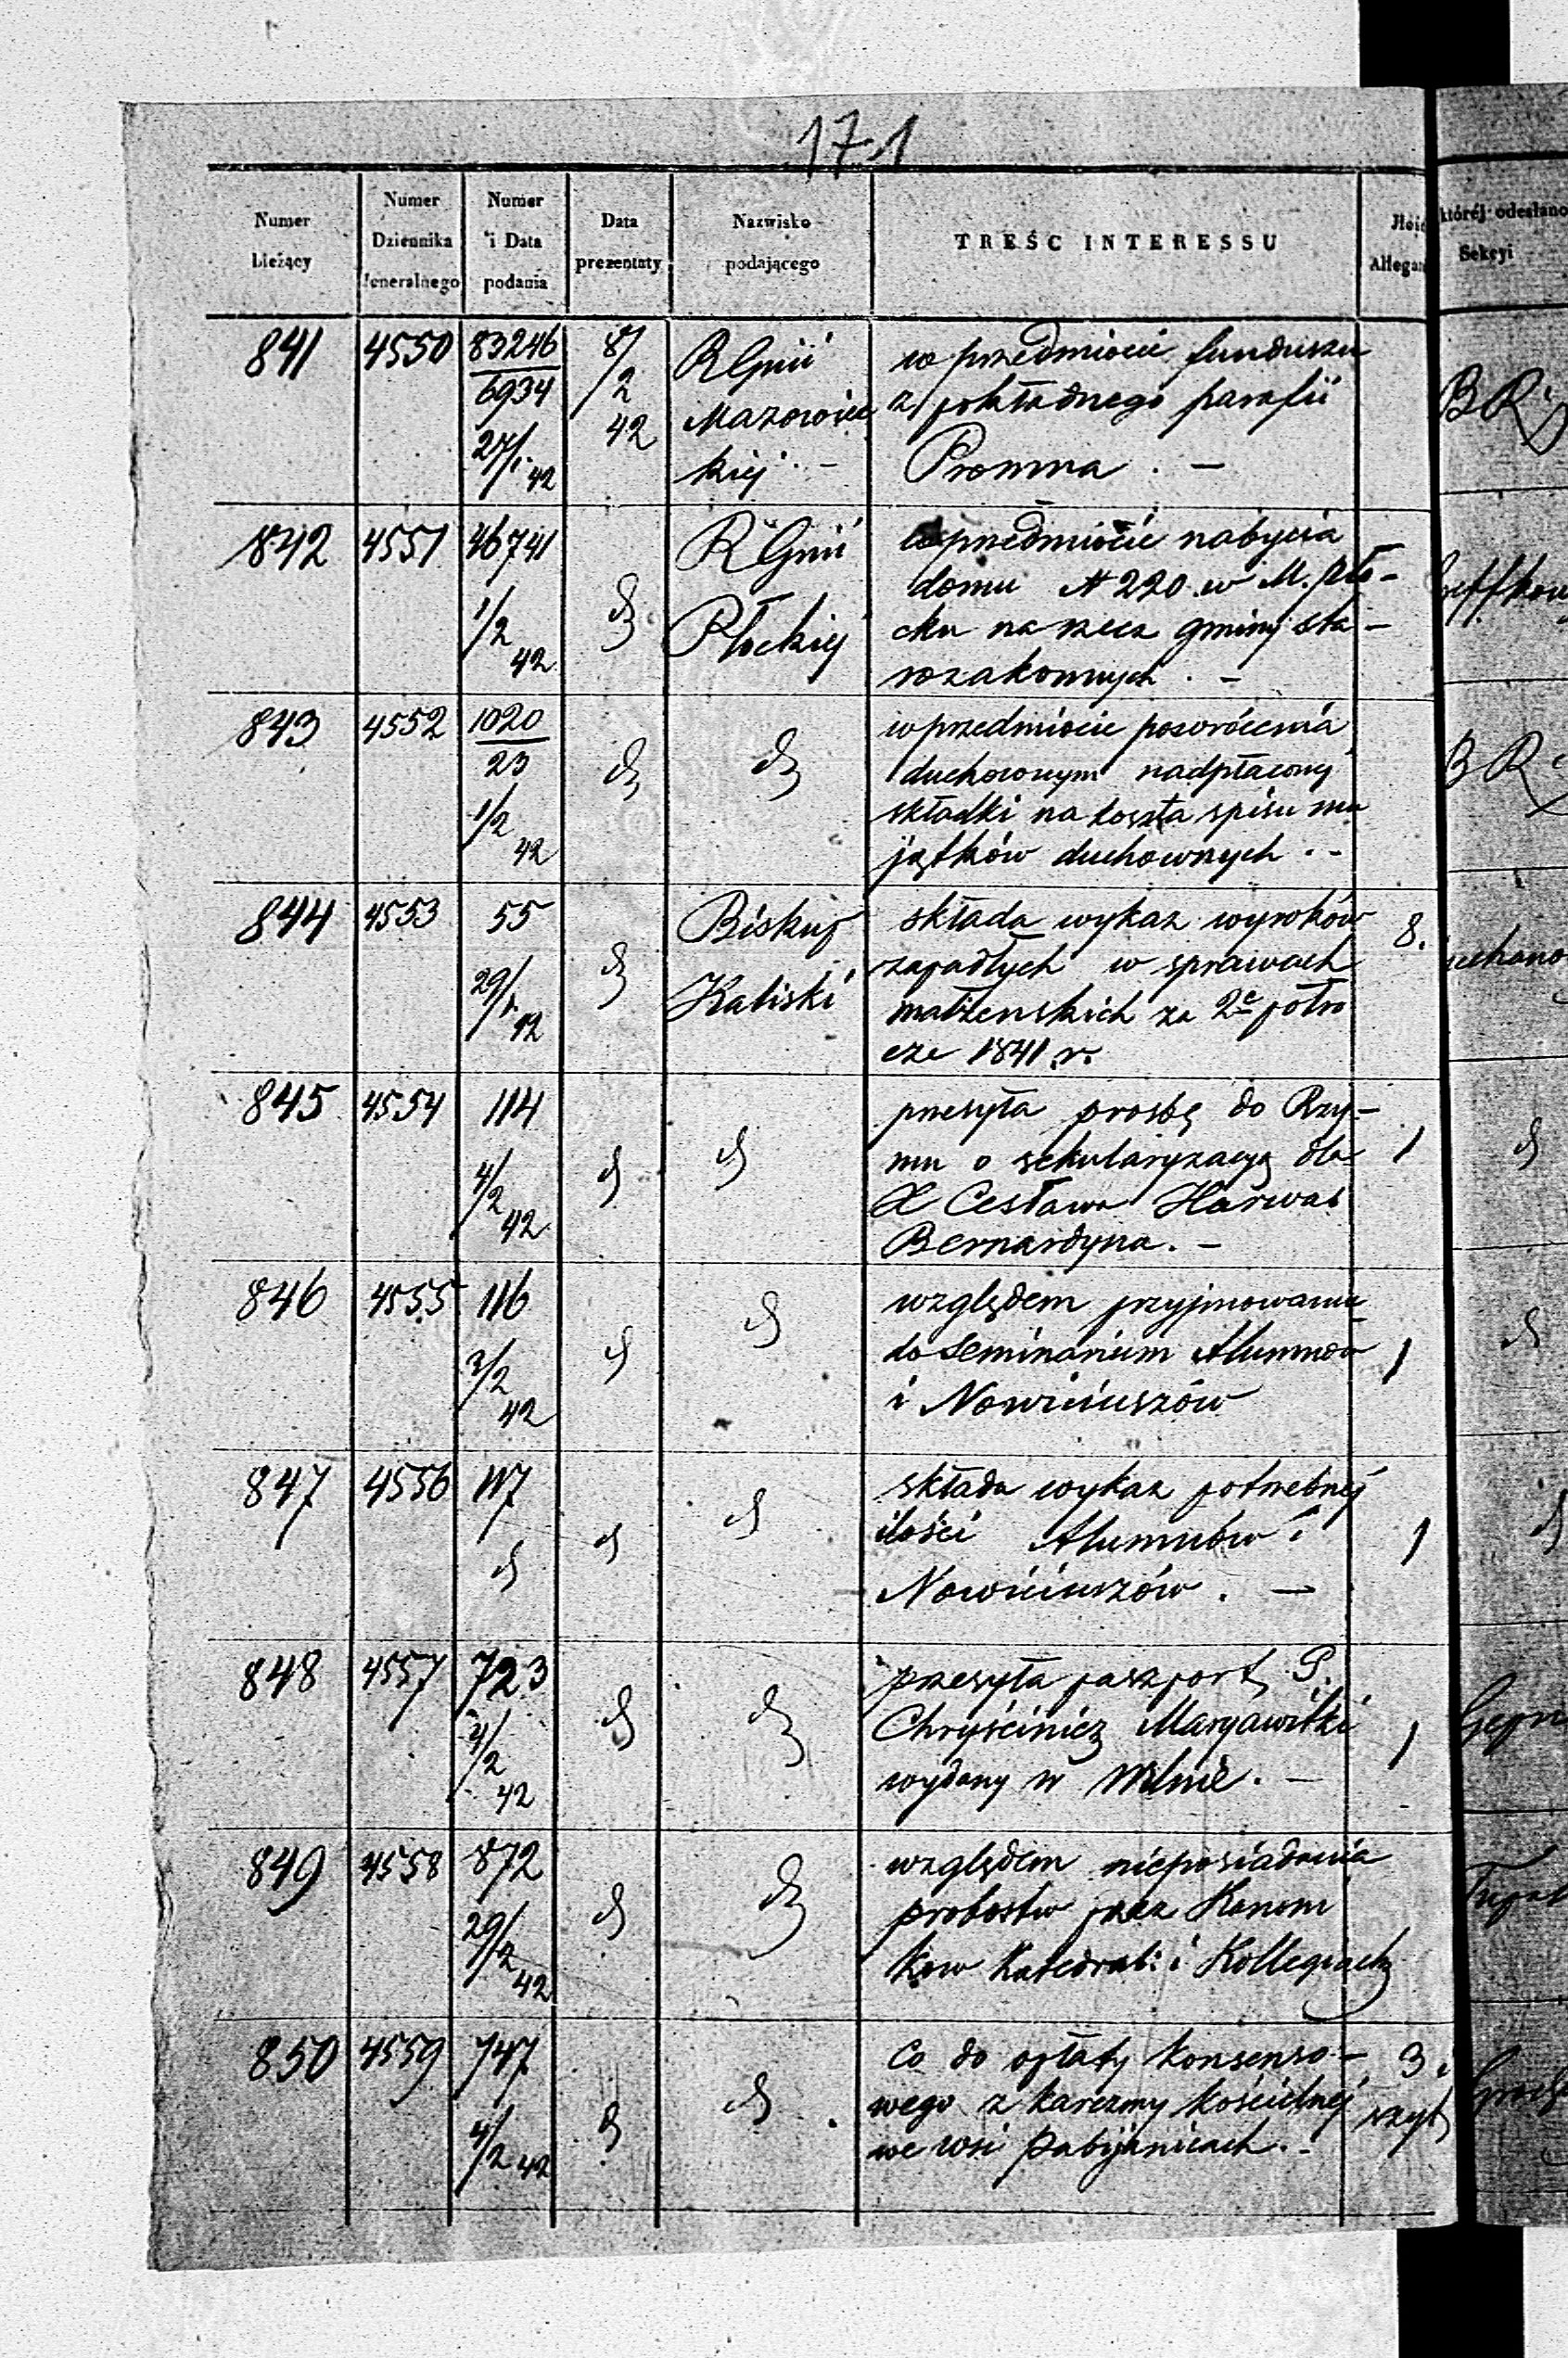 171
Numer Bieżący
Numer Dziennika Jeneralnego
Numer i Data podania
Data prezentaty
Nazwisko podającego
TREŚĆ INTERESSU
której odesłano Sekcyi
841 4550 83246/6934 27/1 42 8/2 42
R Gnii
Mazowiec
kiej . –
w przedmiocie funduszu
z pokładnego parafii
Promna . –
B R
842 4551 46741 1/2 42 d
R Gnii
Płockiej
w przedmiocie nabycia
domu N 220 w M. Pło-
cku na rzecz gminy sta-
rozakonnych . –
843 4552 1020/23 1/2 42 d d
w przedmiocie powrócenia
duchownym nadpłaconej
składki na koszta spisu ma
jątków duchownych . –
B R
844 4553 55 29/1 42 d
Biskup
Kaliski
składa wykaz wyroków
zapadłych w sprawach
małżenskich za 2e półro
cze 1841 r.
8.
845 4554 114 4/2 42 d d
przesyła prosbę do Rzy-
mu o sekularyzacyą dla
X Cesława Harwas
Bernardyna. –
1
d
846 4555 116 3/2 42 d d
względem przyjmowania
do Seminarium Alumnów
i Nowiciuszów
1
d
847 4556 117 d d d
składa wykaz potrzebnej
ilości Alumnów i
Nowiciuszów . –
1
d
848 4557 723 4/2 42 d d
przesyła paszport P.
Chryścinicz Maryawitki
wydany w Wilnie . –
1
849 4558 872 29/2 42 d d
względem nieposiadania
probostw przez Kanoni
kow Katedral: i Kollegiackę
850 4559 747 4/2 42 d d
Co do opłaty konsenso-
wego z karczmy kościelnej
we wsi Pabijanicach. –
3 i
szyt